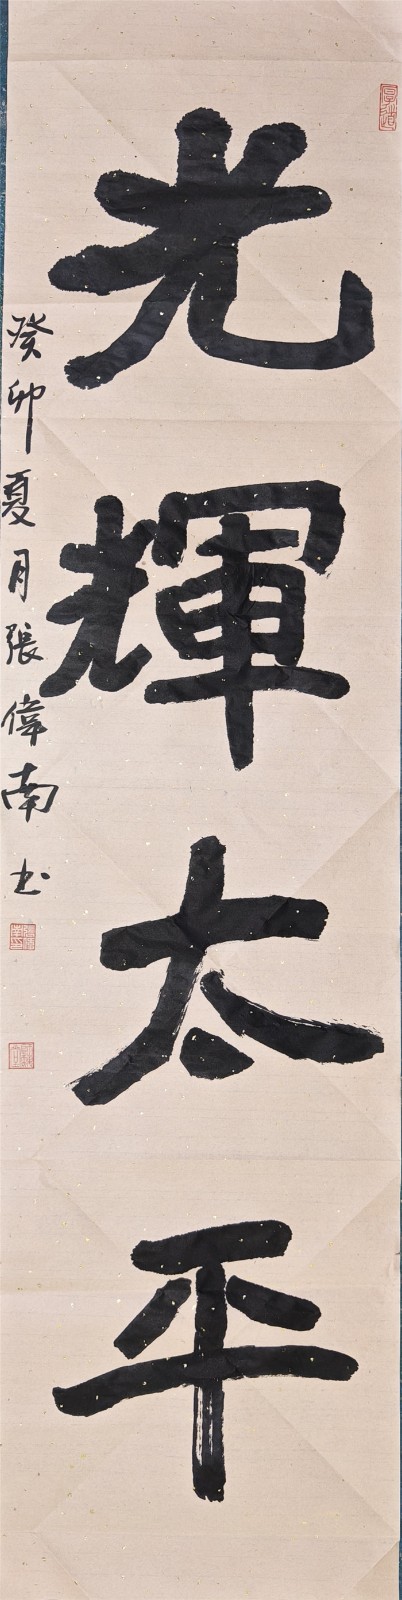 光輝太平
癸卯夏月張偉南书